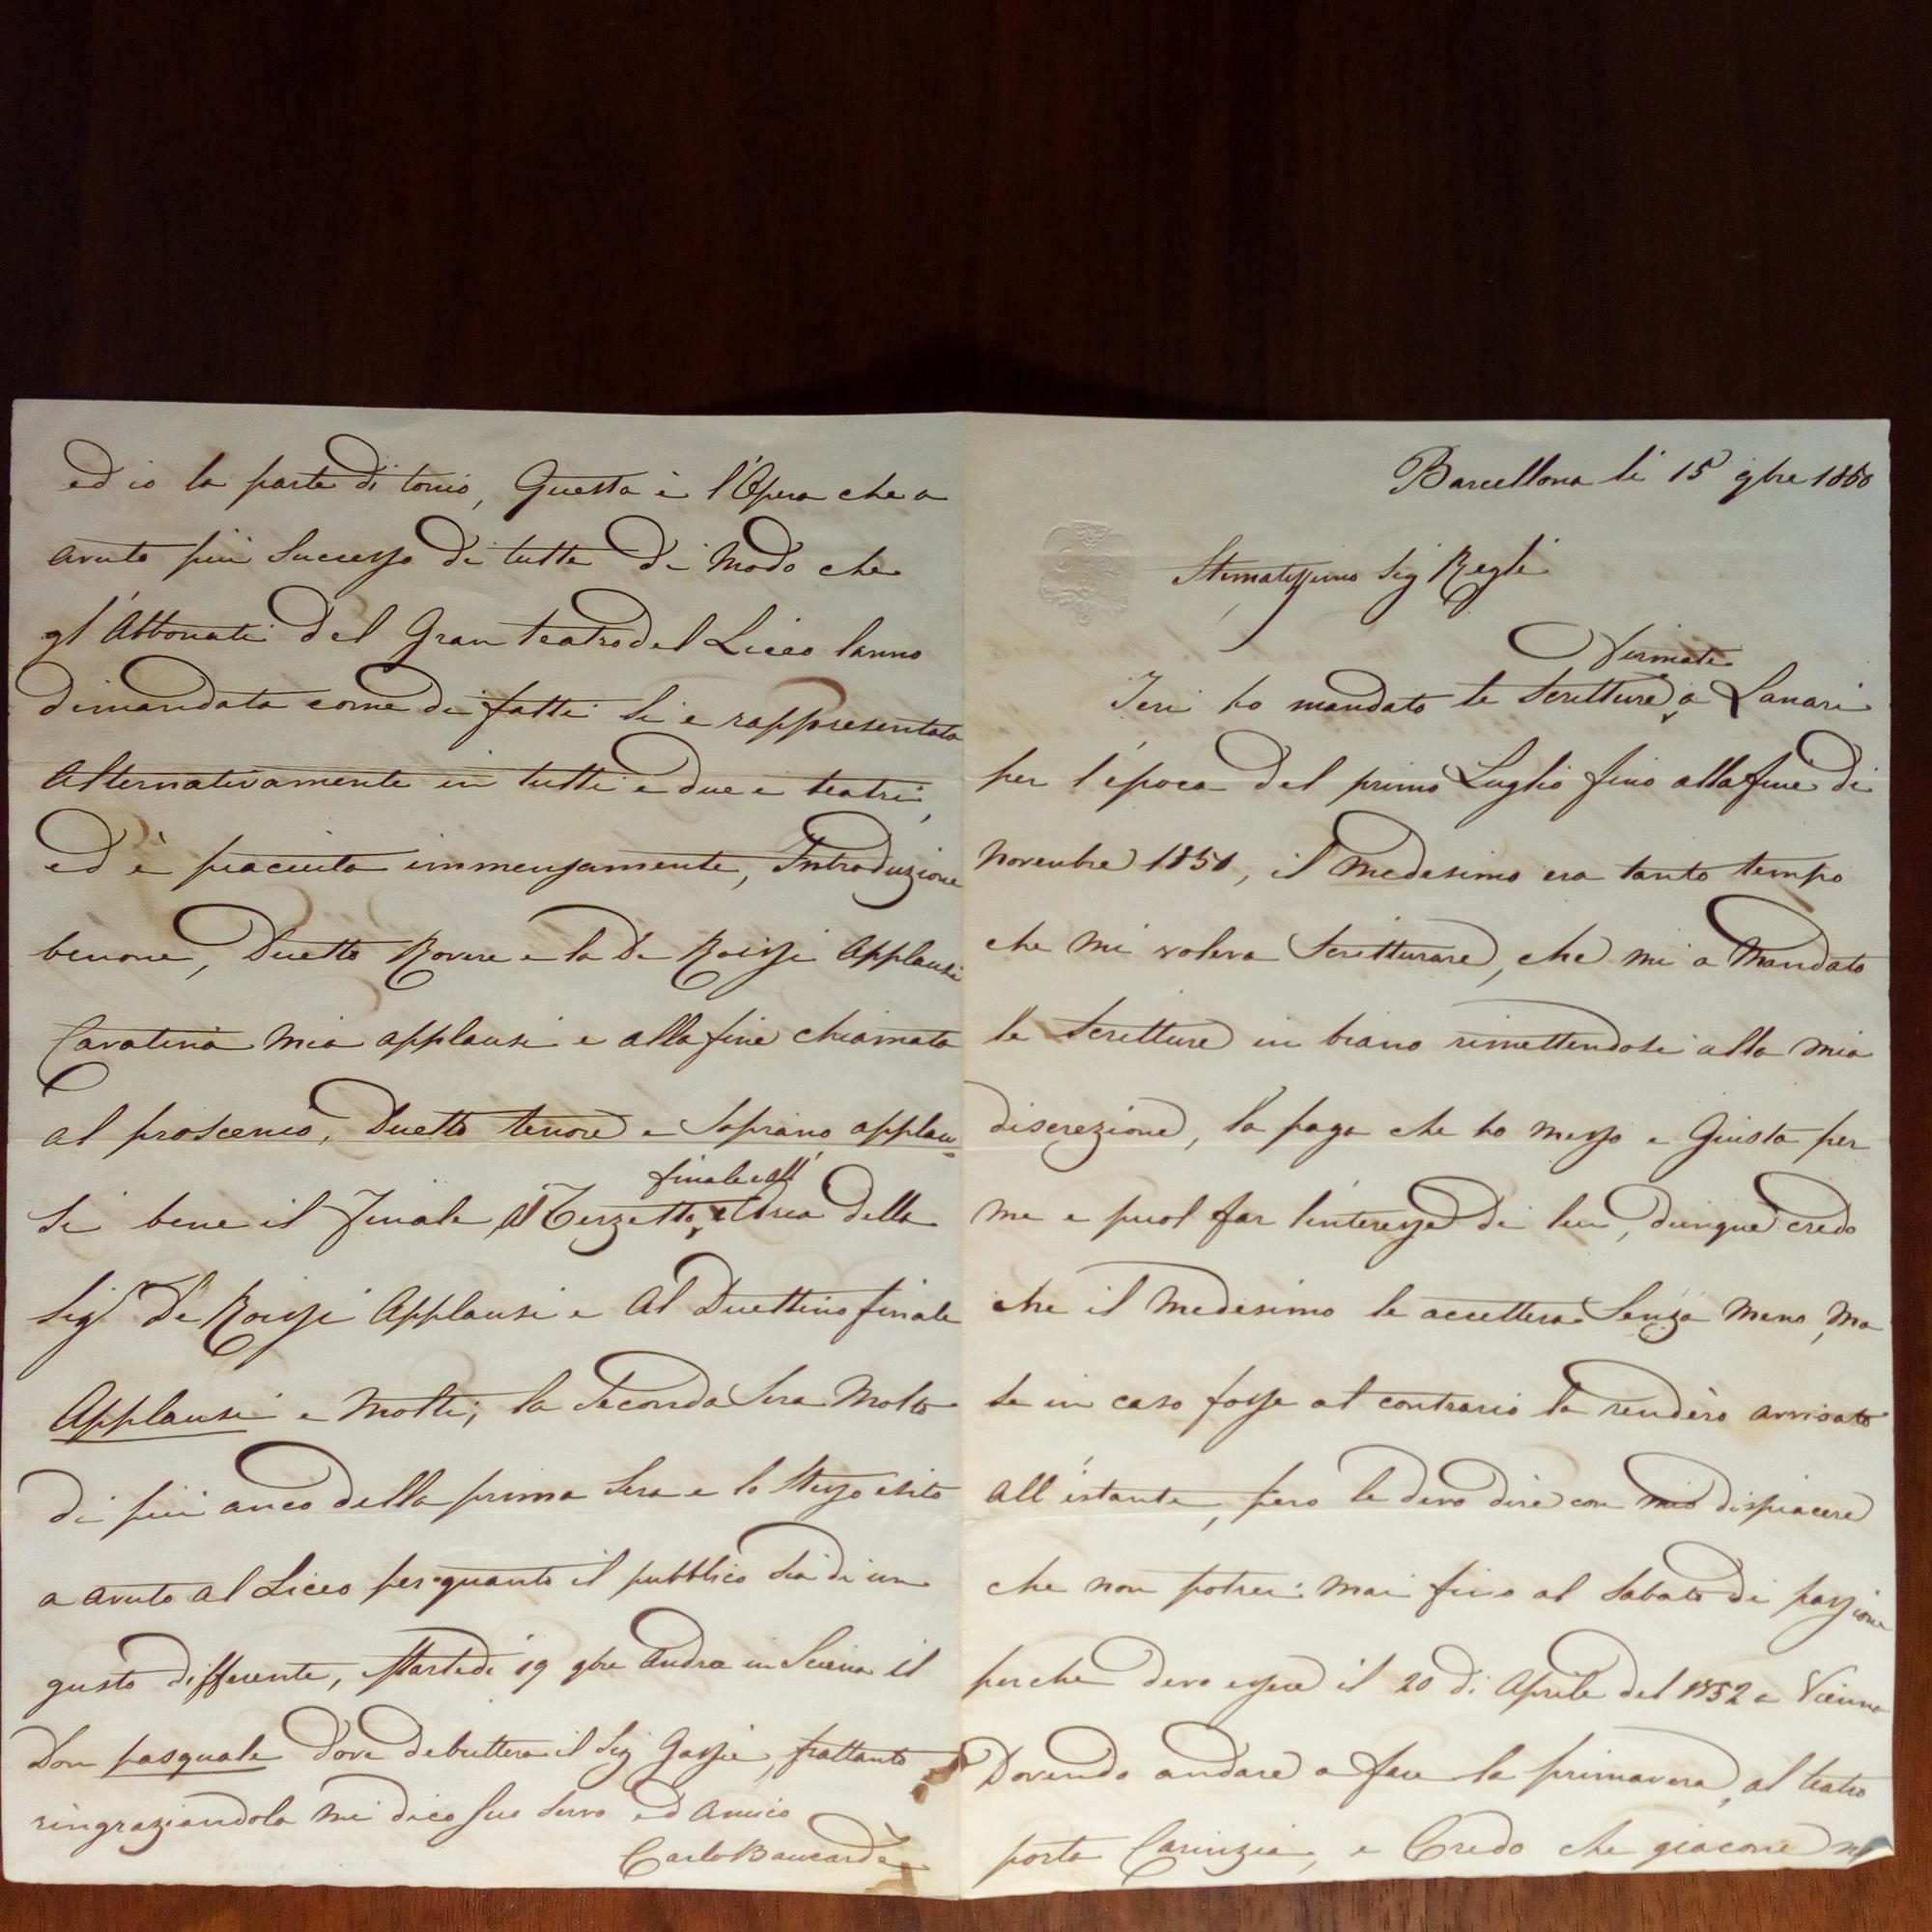 Barcellona li 15 9bre 1850
Stimatissimo Sig Regli
Firmate
Ieri ho mandato le Scritture a Lanari
per l'época del primo Luglio fino alla fine di
Novembre 1851, il Medesimo era tanto tempo
che mi voleva Scritturare, che mi a Mandato
le Scritture in biano rimettendosi alla mia
discrezione, la paga che ho messo e Giusta per
me e puol far l'interesse di lui, dunque credo
che il Medesimo le accettera Senza Meno, Ma
se in caso fosse al contrario la renderò avvisato
all'istante, pero le devo dire con mio dispiacere
che non potrei mai fino al Sabato di passione
perche devo essere il 20 di Aprile del 1852 a Vienna
Dovendo andare a fare la primavera, al teatro
porta Carinzia, e Credo che giacone
ed io la parte di tonio, Questa è l'Opera che a
avuto più Successo di tutte di Modo che
gl'Abbonati del Gran teatro del Liceo lanno
dimandata come di fatti si e rappresentata
Alternativamente in tutti e due i teatri,
ed è piaciuta immensamente, Introduzione
benone, Duetto Rovere e la De Roissi Applausi
Cavatina Mia applausi e alla fine chiamata
al proscenio, Duetto tenore e Soprano applau=
finale all'
si bene il Finale, Al Terzetto, Aria della
Sigr De Roissi Applausi e Al Duettino finale
Applausi e Molti; la Seconda Sera Molto
di più anco della prima Sera e lo Stesso esito
a avuto al Liceo per quanto il pubblico sia di un
gusto differente, Martedi 19 9bre Andra in Sciena il
Don pasquale dove debuttera il Sig Gassie, frattanto
ringraziandola mi dico Suo Servo ed Amico
Carlo Baucardè